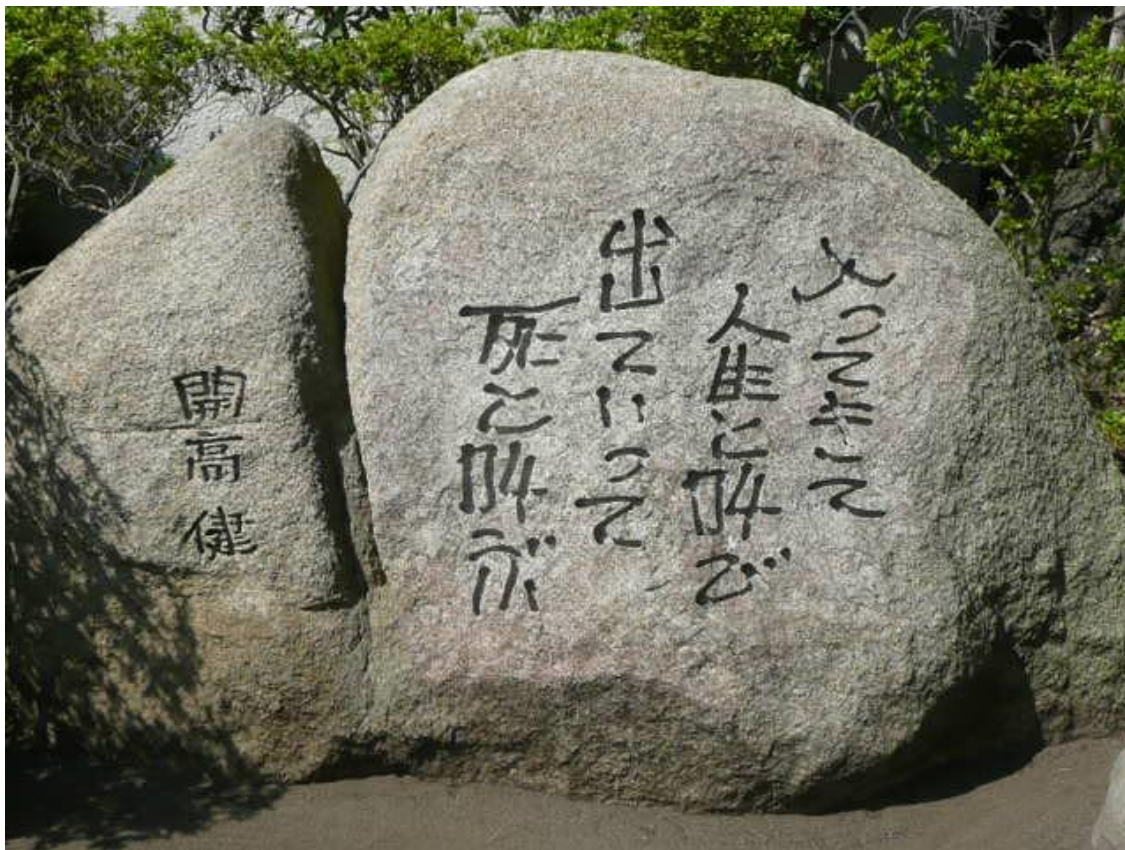 入ってきて
人生と叫び
出ていって
死と叫ぶ
開高健